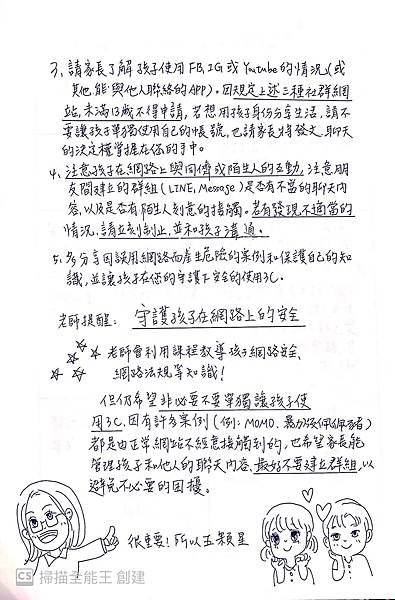 3. 請家長了解孩子使用FB,IG或Youtube的情況(或
其他能與他人聯絡的APP)。因規定上述三種社群網
站,未滿13歲不得申請,若想用孩子身份分享生活,請不
要讓孩子單獨使用自己的帳號,也請家長將發文、聊天
的決定權掌握在你的手中。
4. 注意孩子在網路上與同儕或陌生人的互動,注意朋
友間建立的群組(LINE, Message)是否有不當的聊天內
容,以及是否有陌生人刻意的接觸。若有發現不適當的
情況,請立刻制止,並和孩子溝通。
5. 多分享因誤用網路而產生危險的案例和保護自己的知
識,並讓孩子在你的守護下安全的使用3C。
老師提醒: 守護孩子在網路上的安全
老師會利用課程教導孩子網路安全、
網路法規等知識!
但仍希望非必要不要單獨讓孩子使
用3C,因有許多案例(例:MOMO、暴力版佩佩豬)
都是由正常網站不經意接觸到的,也希望家長能
管理孩子和他人的聊天內容,最好不要建立群組,以
避免不必要的困擾。
很重要!所以五顆星
CS 掃描全能王 創建